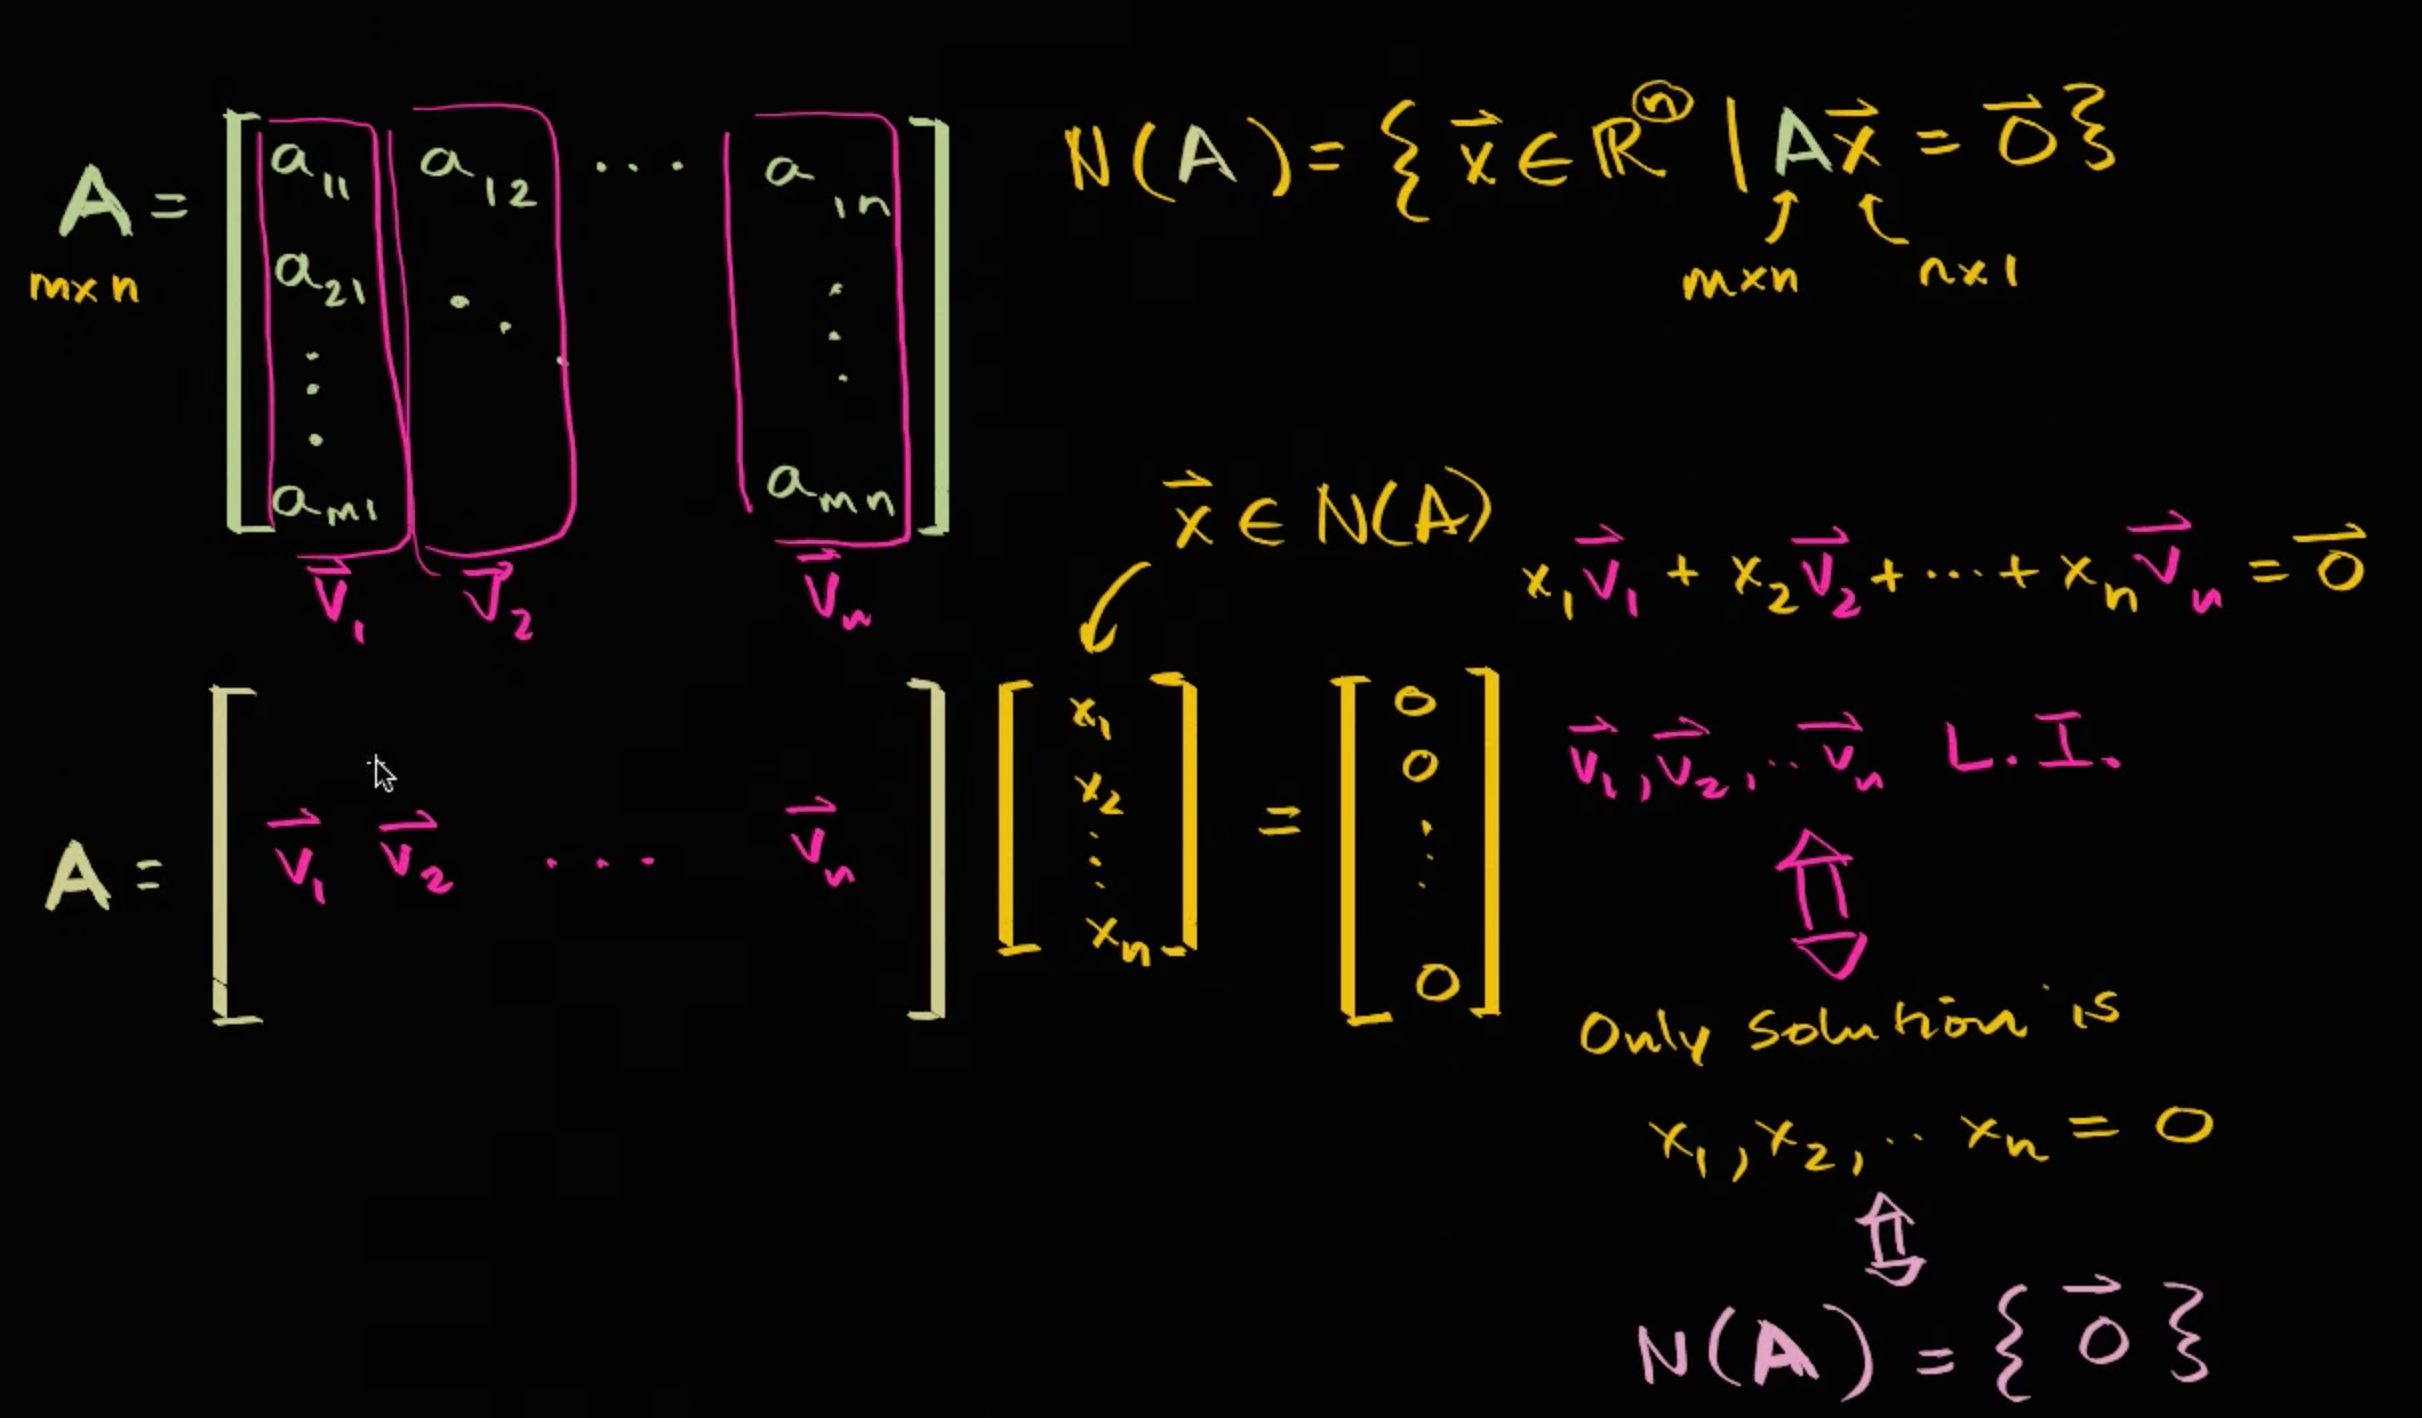 A = [ a₁₁ a₁₂ ... a₁ₙ
m×n
a₂₁ ⋱ ⋮
⋮
aₘ₁ aₘₙ ]
v⃗₁ v⃗₂ v⃗ₙ
N(A) = { x⃗ ∈ ℝⁿ | Ax⃗ = 0⃗ }
m×n n×1
x⃗ ∈ N(A)
x₁v⃗₁ + x₂v⃗₂ + ... + xₙv⃗ₙ = 0⃗
A = [ v⃗₁ v⃗₂ ... v⃗ₙ ] [ x₁ x₂ ⋮ xₙ ] = [ 0 0 ⋮ 0 ]
v⃗₁, v⃗₂, .. v⃗ₙ L.I.
⇕
Only solution is
x₁, x₂, .. xₙ = 0
⇕
N(A) = { 0⃗ }